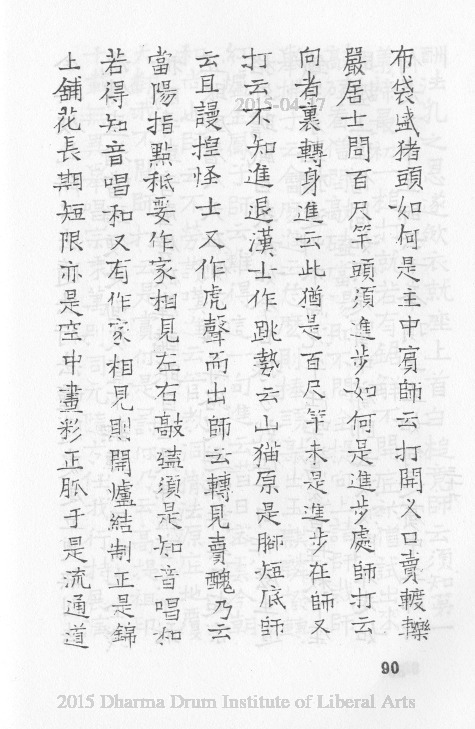 布袋盛猪頭如何是主中賓師云打開义口賣轆轢
嚴居士問百尺竿頭須進步如何是進步處師打云
向者裏轉身進云此猶是百尺竿未是進步在師又
打云不知進退漢士作跳勢云山猫原是脚短底師
云且謾揑怪士又作虎聲而出師云轉見賣醜乃云
當陽指點秪要作家相見左右敲藴須是知音唱和
若得知音唱和又有作家相見則開爐結制正是錦
上舖花長期短限亦是空中畫彩正脈于是流通道
90
2015-04-17
2015 Dharma Drum Institute of Liberal Arts